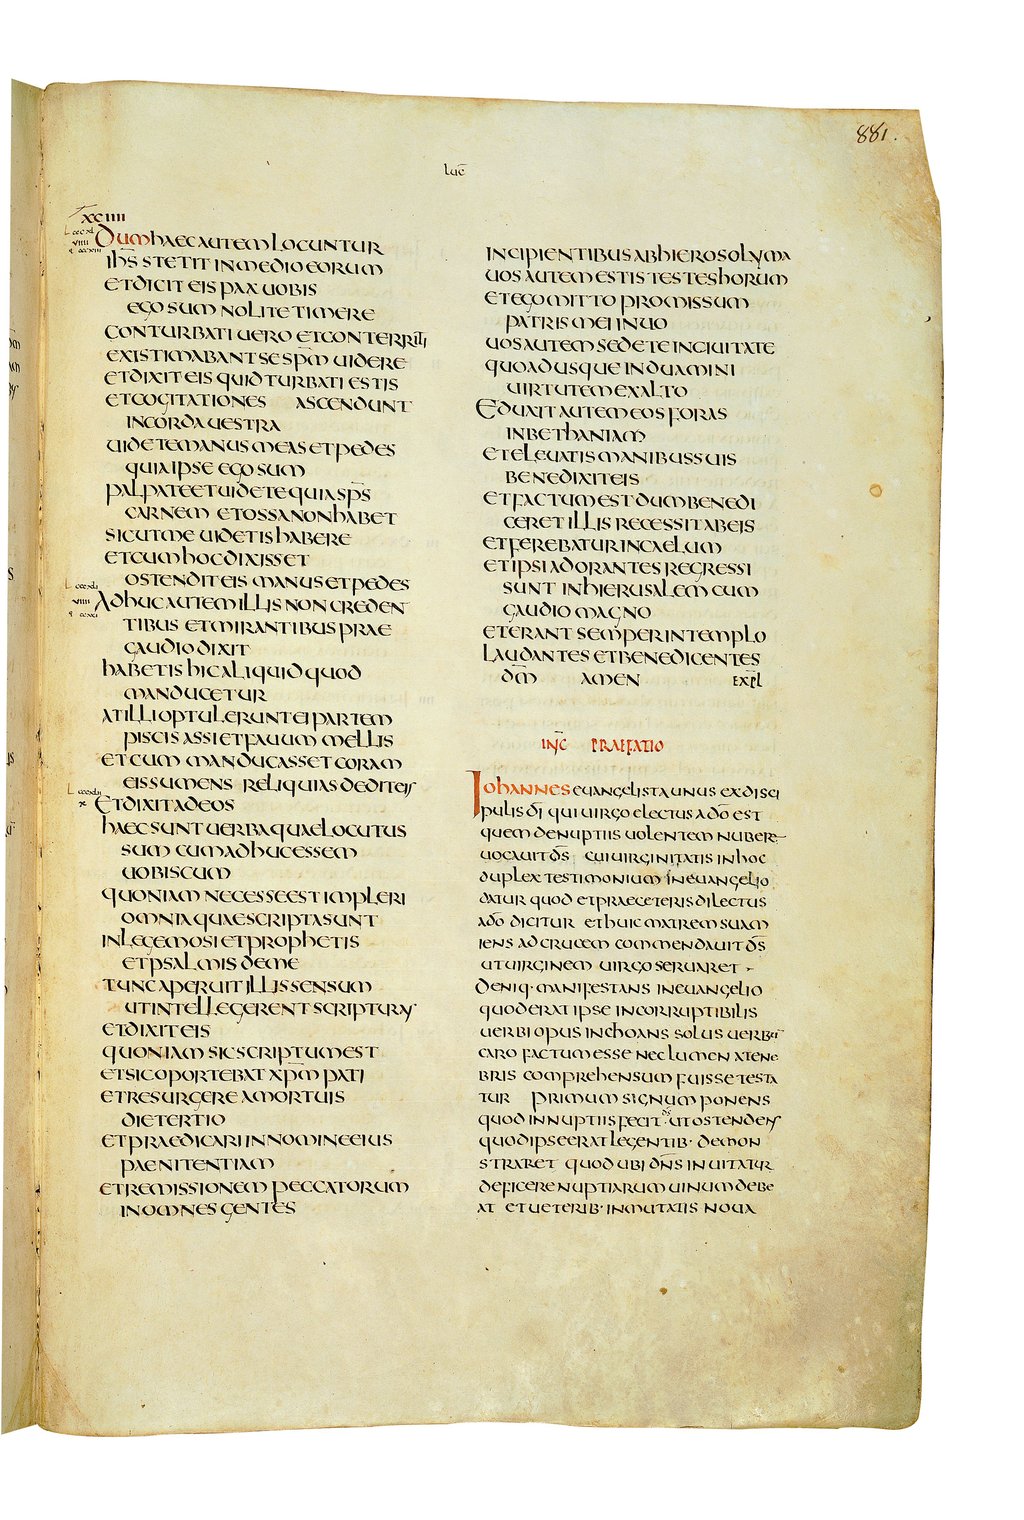 881.
luc̄
XCIIII
DUM HAEC AUTEM LOCUNTUR
IHS̄ STETIT IN MEDIO EORUM
ET DICIT EIS PAX UOBIS
EGO SUM NOLITE TIMERE
CONTURBATI UERO ET CONTERRITI
EXISTIMABANT SE SPM̄ UIDERE
ET DIXIT EIS QUID TURBATI ESTIS
ET COGITATIONES ASCENDUNT
IN CORDA UESTRA
UIDETE MANUS MEAS ET PEDES
QUIA IPSE EGO SUM
PALPATE ET UIDETE QUIA SPS̄
CARNEM ET OSSA NON HABET
SICUT ME UIDETIS HABERE
ET CUM HOC DIXISSET
OSTENDIT EIS MANUS ET PEDES
ADHUC AUTEM ILLIS NON CREDEN
TIBUS ET MIRANTIBUS PRAE
GAUDIO DIXIT
HABETIS HIC ALIQUID QUOD
MANDUCETUR
AT ILLI OPTULERUNT EI PARTEM
PISCIS ASSI ET FAUUM MELLIS
ET CUM MANDUCASSET CORAM
EIS SUMENS RELIQUIAS DEDIT EIS
ET DIXIT AD EOS
HAEC SUNT UERBA QUAE LOCUTUS
SUM CUM ADHUC ESSEM
UOBISCUM
QUONIAM NECESSE EST IMPLERI
OMNIA QUAE SCRIPTA SUNT
IN LEGE MOSI ET PROPHETIS
ET PSALMIS DE ME
TUNC APERUIT ILLIS SENSUM
UT INTELLEGERENT SCRIPTURAS
ET DIXIT EIS
QUONIAM SIC SCRIPTUM EST
ET SIC OPORTEBAT XPM̄ PATI
ET RESURGERE A MORTUIS
DIE TERTIO
ET PRAEDICARI IN NOMINE EIUS
PAENITENTIAM
ET REMISSIONEM PECCATORUM
IN OMNES GENTES
INCIPIENTIBUS AB HIEROSOLYMA
UOS AUTEM ESTIS TESTES HORUM
ET EGO MITTO PROMISSUM
PATRIS MEI IN UO
UOS AUTEM SEDETE IN CIUITATE
QUOADUSQUE INDUAMINI
UIRTUTEM EX ALTO
EDUXIT AUTEM EOS FORAS
IN BETHANIAM
ET ELEUATIS MANIBUS SUIS
BENEDIXIT EIS
ET FACTUM EST DUM BENEDI
CERET ILLIS RECESSIT AB EIS
ET FEREBATUR IN CAELUM
ET IPSI ADORANTES REGRESSI
SUNT IN HIERUSALEM CUM
GAUDIO MAGNO
ET ERANT SEMPER IN TEMPLO
LAUDANTES ET BENEDICENTES
DM̄ AMEN EXPL̄
INC̄ PRAEFATIO
IOHANNES EUANGELISTA UNUS EX DISCI
PULIS DĪ QUI UIRGO ELECTUS A DŌ EST
QUEM DE NUPTIIS UOLENTEM NUBERE
UOCAUIT DS̄ CUI UIRGINITATIS IN HOC
DUPLEX TESTIMONIUM IN EUANGELIO
DATUR QUOD ET PRAE CETERIS DILECTUS
A DŌ DICITUR ET HUIC MATREM SUAM
IENS AD CRUCEM COMMENDAUIT DS̄
UT UIRGINEM UIRGO SERUARET
DENIQ· MANIFESTANS IN EUANGELIO
QUOD ERAT IPSE INCORRUPTIBILIS
UERBI OPUS INCHOANS SOLUS UERBUM
CARO FACTUM ESSE NEC LUMEN A TENE
BRIS COMPREHENSUM FUISSE TESTA
TUR PRIMUM SIGNUM PONENS
QUOD IN NUPTIIS FECIT DS̄ UT OSTENDENS
QUOD IPSE ERAT LEGENTIB· DEMON
STRARET QUOD UBI DN̄S INUITATUR
DEFICERE NUPTIARUM UINUM DEBE
AT ET UETERIB· INMUTATIS NOUA